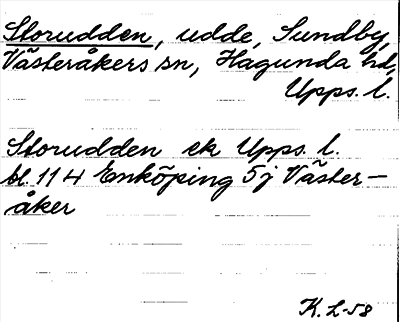 Storudden, udde, Sundby,
Västeråkers sn, Hagunda hd,
Upps. l.
Storudden ek Upps. l.
bl. 114 Enköping 5j Väster-
åker
K. L-58